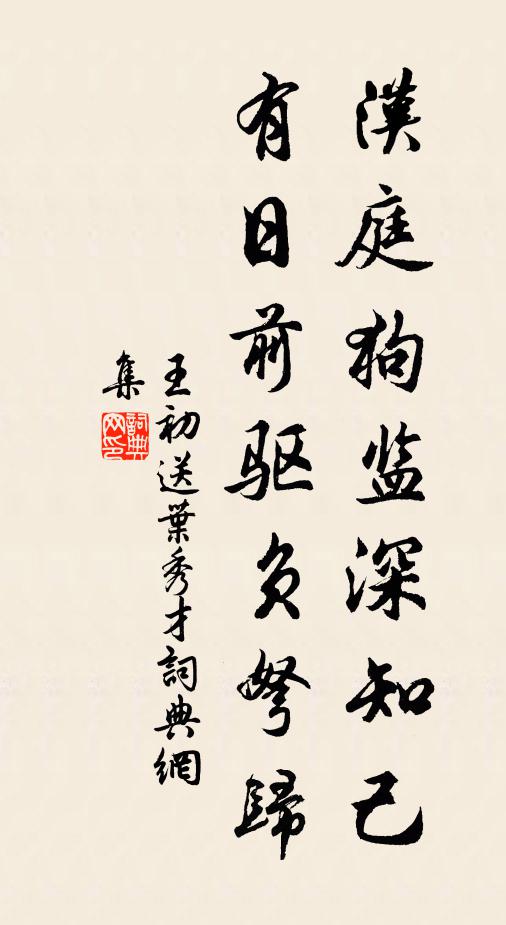 漢庭狗监深知己
有日前驱负弩歸
王初送葉秀才詞典網
集
詞典
网印